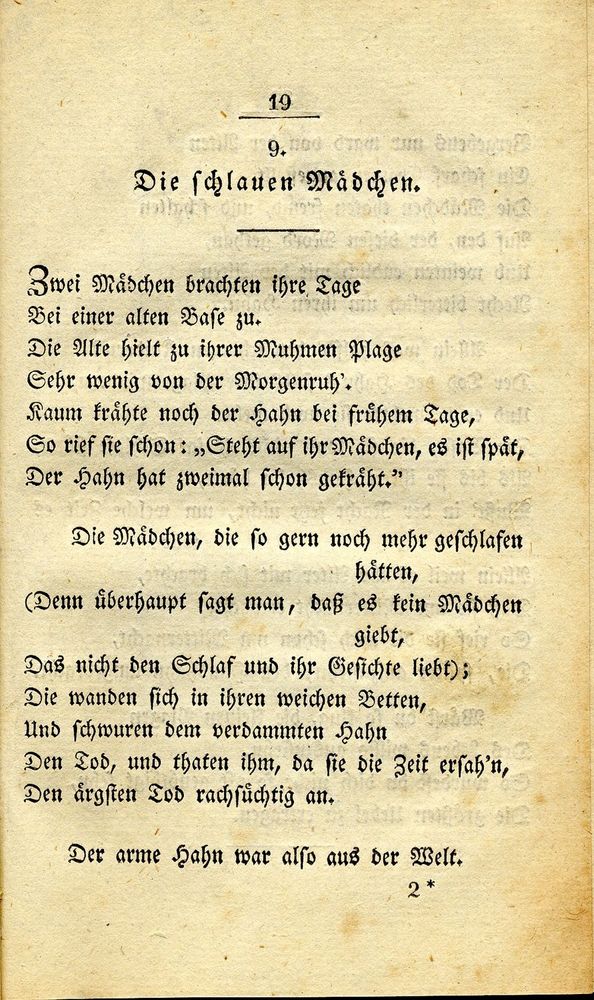 19
9.
Die schlauen Mädchen.
Zwei Mädchen brachten ihre Tage
Bei einer alten Base zu.
Die Alte hielt zu ihrer Muhmen Plage
Sehr wenig von der Morgenruh'.
Kaum krähte noch der Hahn bei frühem Tage,
So rief sie schon: „Steht auf ihr Mädchen, es ist spät,
Der Hahn hat zweimal schon gekräht.”
Die Mädchen, die so gern noch mehr geschlafen
hätten,
(Denn überhaupt sagt man, daß es kein Mädchen
giebt,
Das nicht den Schlaf und ihr Gesichte liebt);
Die wanden sich in ihren weichen Betten,
Und schwuren dem verdammten Hahn
Den Tod, und thaten ihm, da sie die Zeit ersah'n,
Den ärgsten Tod rachsüchtig an.
Der arme Hahn war also aus der Welt.
2*